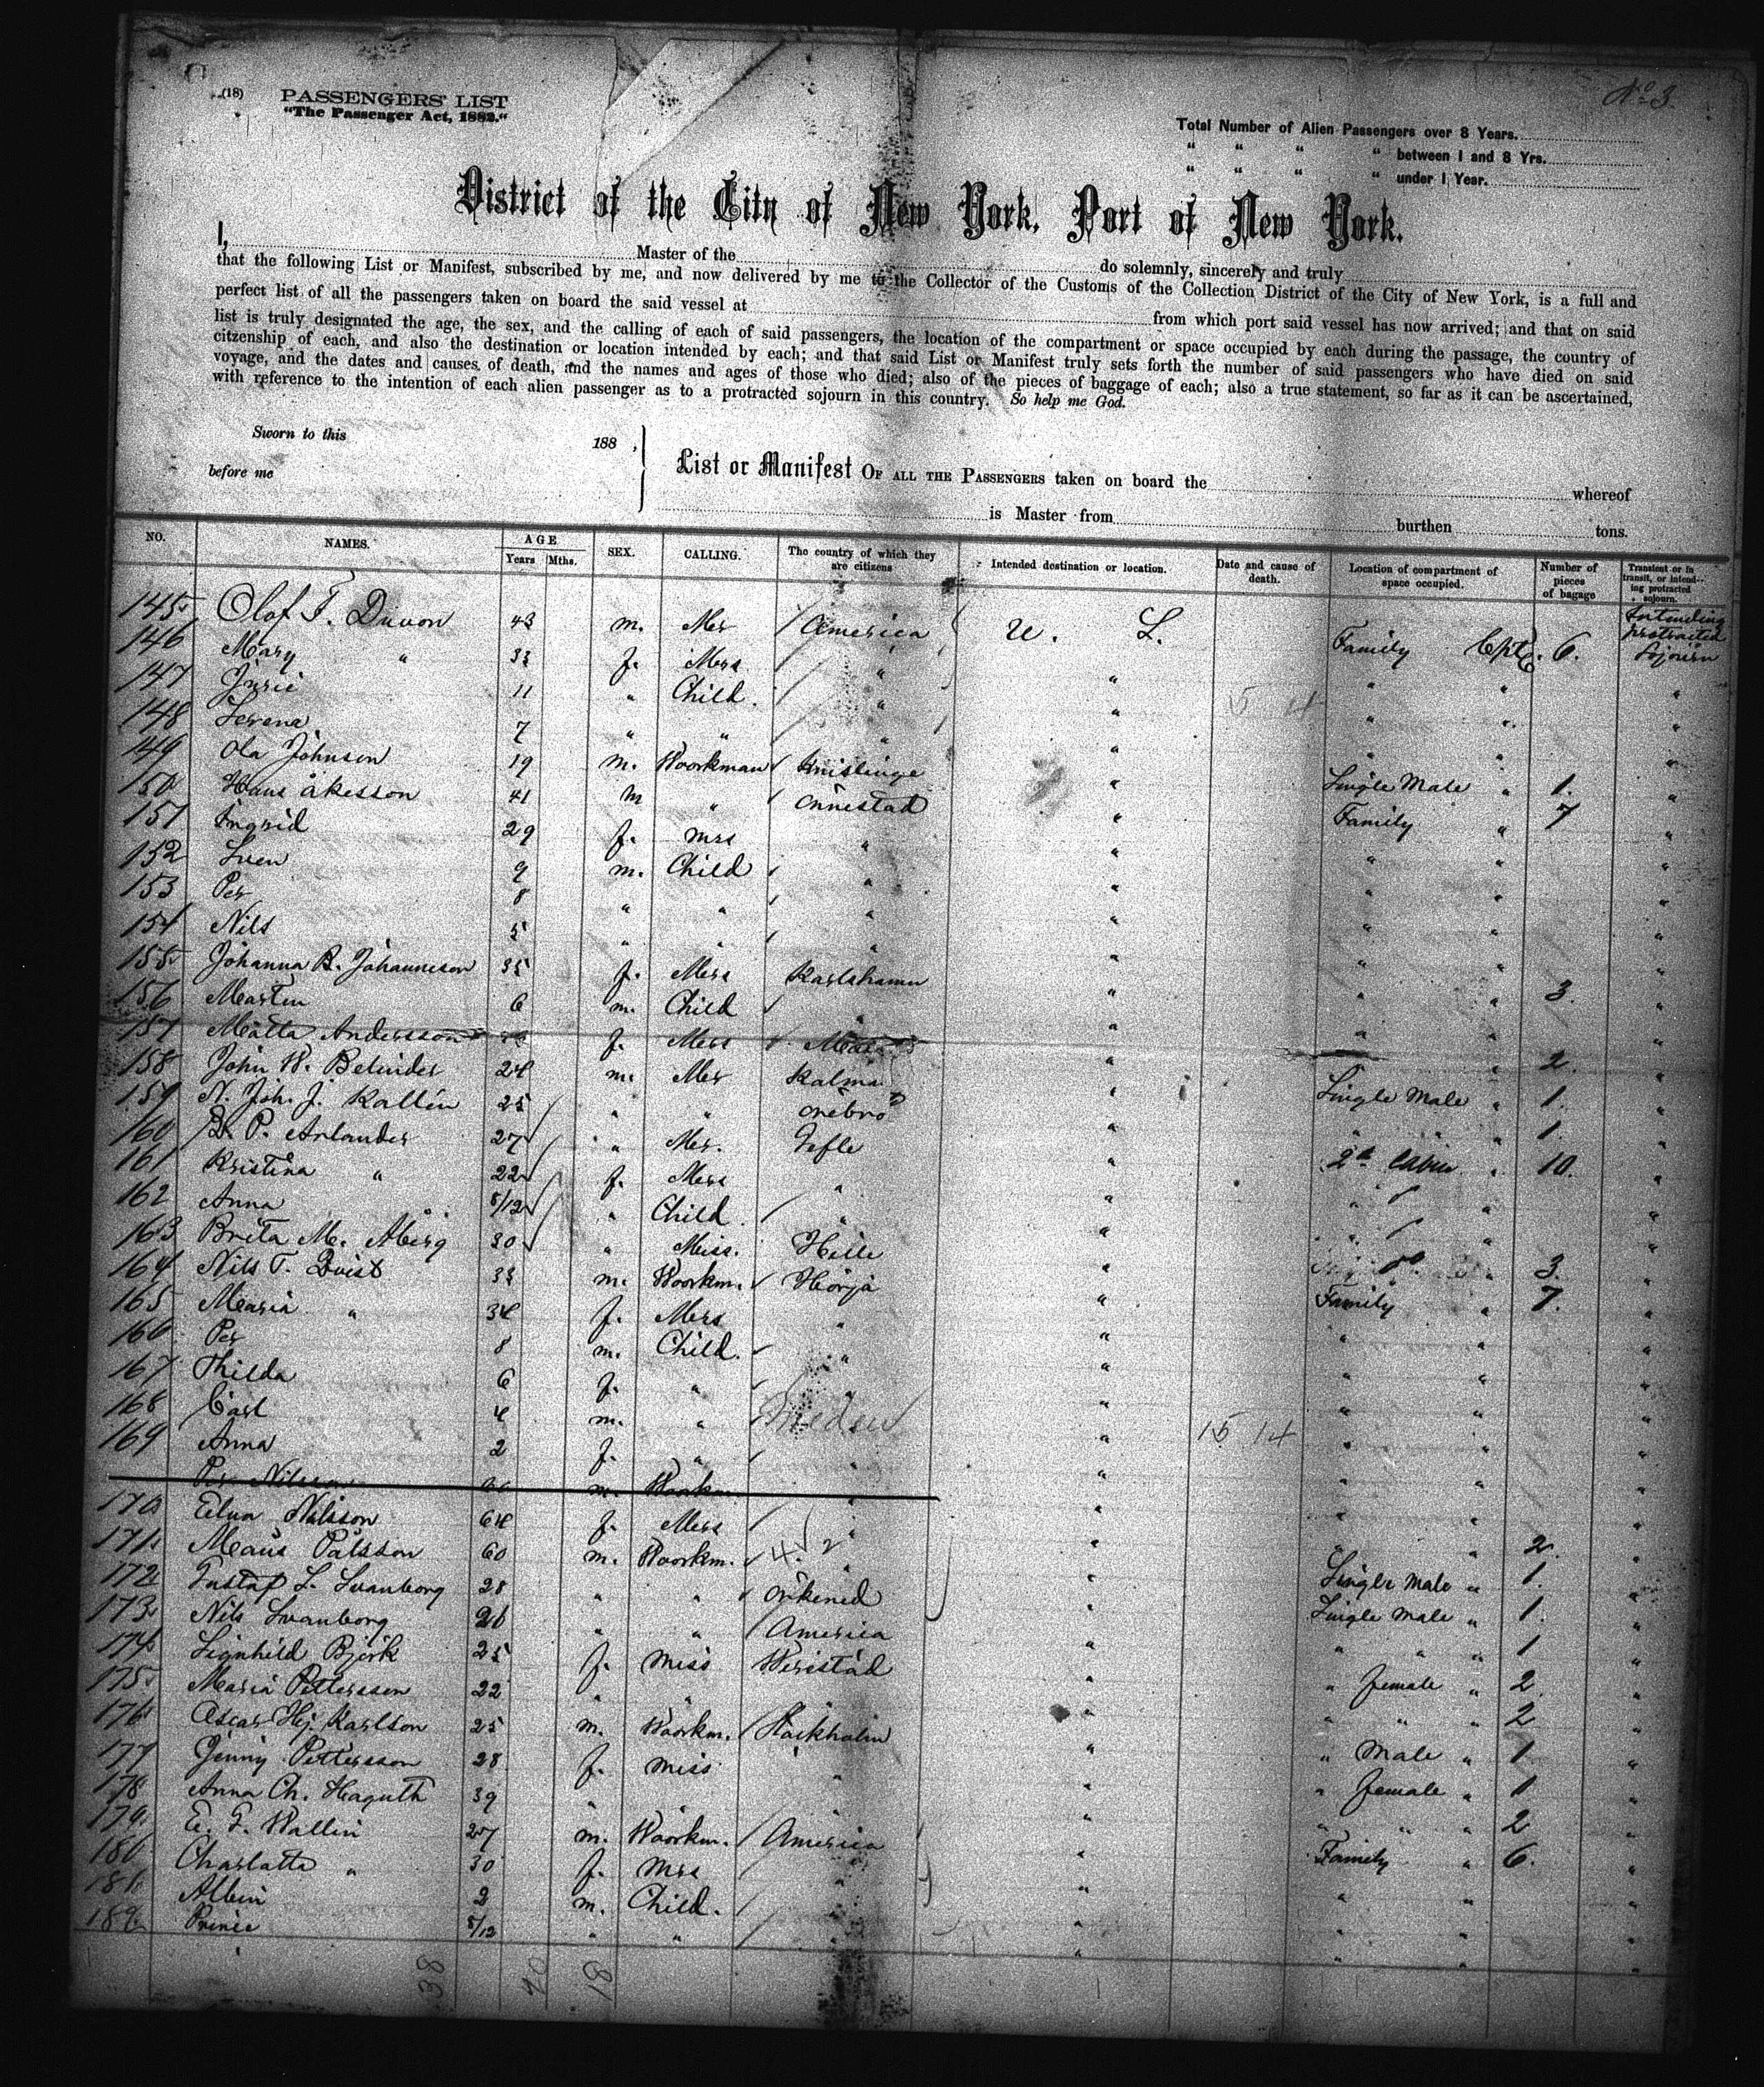 No 3.
(18) PASSENGERS' LIST
"The Passenger Act, 1882."
Total Number of Alien Passengers over 8 Years.
" " " " between 1 and 8 Yrs.
" " " " under 1 Year.
District of the City of New York, Port of New York.
I, Master of the do solemnly, sincerely and truly
that the following List or Manifest, subscribed by me, and now delivered by me to the Collector of the Customs of the Collection District of the City of New York, is a full and
perfect list of all the passengers taken on board the said vessel at from which port said vessel has now arrived; and that on said
list is truly designated the age, the sex, and the calling of each of said passengers, the location of the compartment or space occupied by each during the passage, the country of
citzenship of each, and also the destination or location intended by each; and that said List or Manifest truly sets forth the number of said passengers who have died on said
voyage, and the dates and causes of death, and the names and ages of those who died; also of the pieces of baggage of each; also a true statement, so far as it can be ascertained,
with reference to the intention of each alien passenger as to a protracted sojourn in this country. So help me God.
Sworn to this 188 ,
before me
List or Manifest OF ALL THE PASSENGERS taken on board the whereof
is Master from burthen tons.
NO. NAMES. AGE Years Mths. SEX. CALLING. The country of which they are citizens Intended destination or location. Date and cause of death. Location of compartment of space occupied. Number of pieces of bagage Transient or in transit, or intending protracted sojourn.
145 Olof T. 43 m. Mr America Family 6. Intending protracted sojourn
146 Mary " 33 f. Mrs " " " "
147 11 " Child. " " " " "
148 7 " " " " " " "
149 Ola Johnson 19 m. Woorkman Knislinge " Single Male " 1. "
150 Hans Åkesson 41 m " Önnestad " Family " 7 "
151 Ingrid 29 f. Mrs " " " " "
152 Sven 9 m. Child " " " " "
153 Per 8 " " " " " " "
154 Nils 5 " " " " " " "
155 Johanna B. Johanneson 35 f. Mrs Karlshamn " " " 3. "
156 Martin 6 m. Child " " " " "
157 Mätta Andersson f. Mrs " " 2. "
158 John W. Belinder 24 m. Mr Kalmar " Single Male " 1. "
159 N. Joh. J. Kallén 25 " " Örebro " " " " 1. "
160 P. Arlander 27 " Mr. Gefle " 2d Cabin " 10. "
161 Kristina " 22 f. Mrs " " " " "
162 Anna 8/12 " Child. " " " " "
163 Brita M. Åberg 30 " Miss. Hille " " 3. "
164 Nils T. Quist 33 m. Woorkm. Hörja " Family " 7. "
165 Maria " 34 f. Mrs " " " " "
166 Per 8 m. Child. " " " " "
167 Thilda 6 f. " " " " " "
168 Carl 4 m. " Sweden " " " "
169 Anna 2 f. " " 15 14 " " " "
Per Nilsson m. Woorkm. "
170 Elna Nilsson 64 f. Mrs " " " 2. "
171 Måns Pålsson 60 m. Woorkm. " " Single Male " 1. "
172 Gustaf L. Svanborg 28 " " Örkened " Single Male " 1. "
173 Nils Svanborg 26 " " America " " " " 1 "
174 Signhild Björk 25 f. Miss " " female " 2 "
175 Maria Pettersson 22 " " " " " " 2 "
176 Oscar Hj. Karlson 25 m. Woorkm. Stockholm " " Male " 1 "
177 Jenny Pettersson 28 f. Miss " " " female " 1 "
178 Anna Ch. Haguth 39 " " " " " 2 "
179 E. G. Wallin 27 m. Woorkm. America " Family " 6. "
180 Charlotta " 30 f. Mrs " " " " "
181 Albin 2 m. Child. " " " " "
8/12 " " " " " " "
38 18